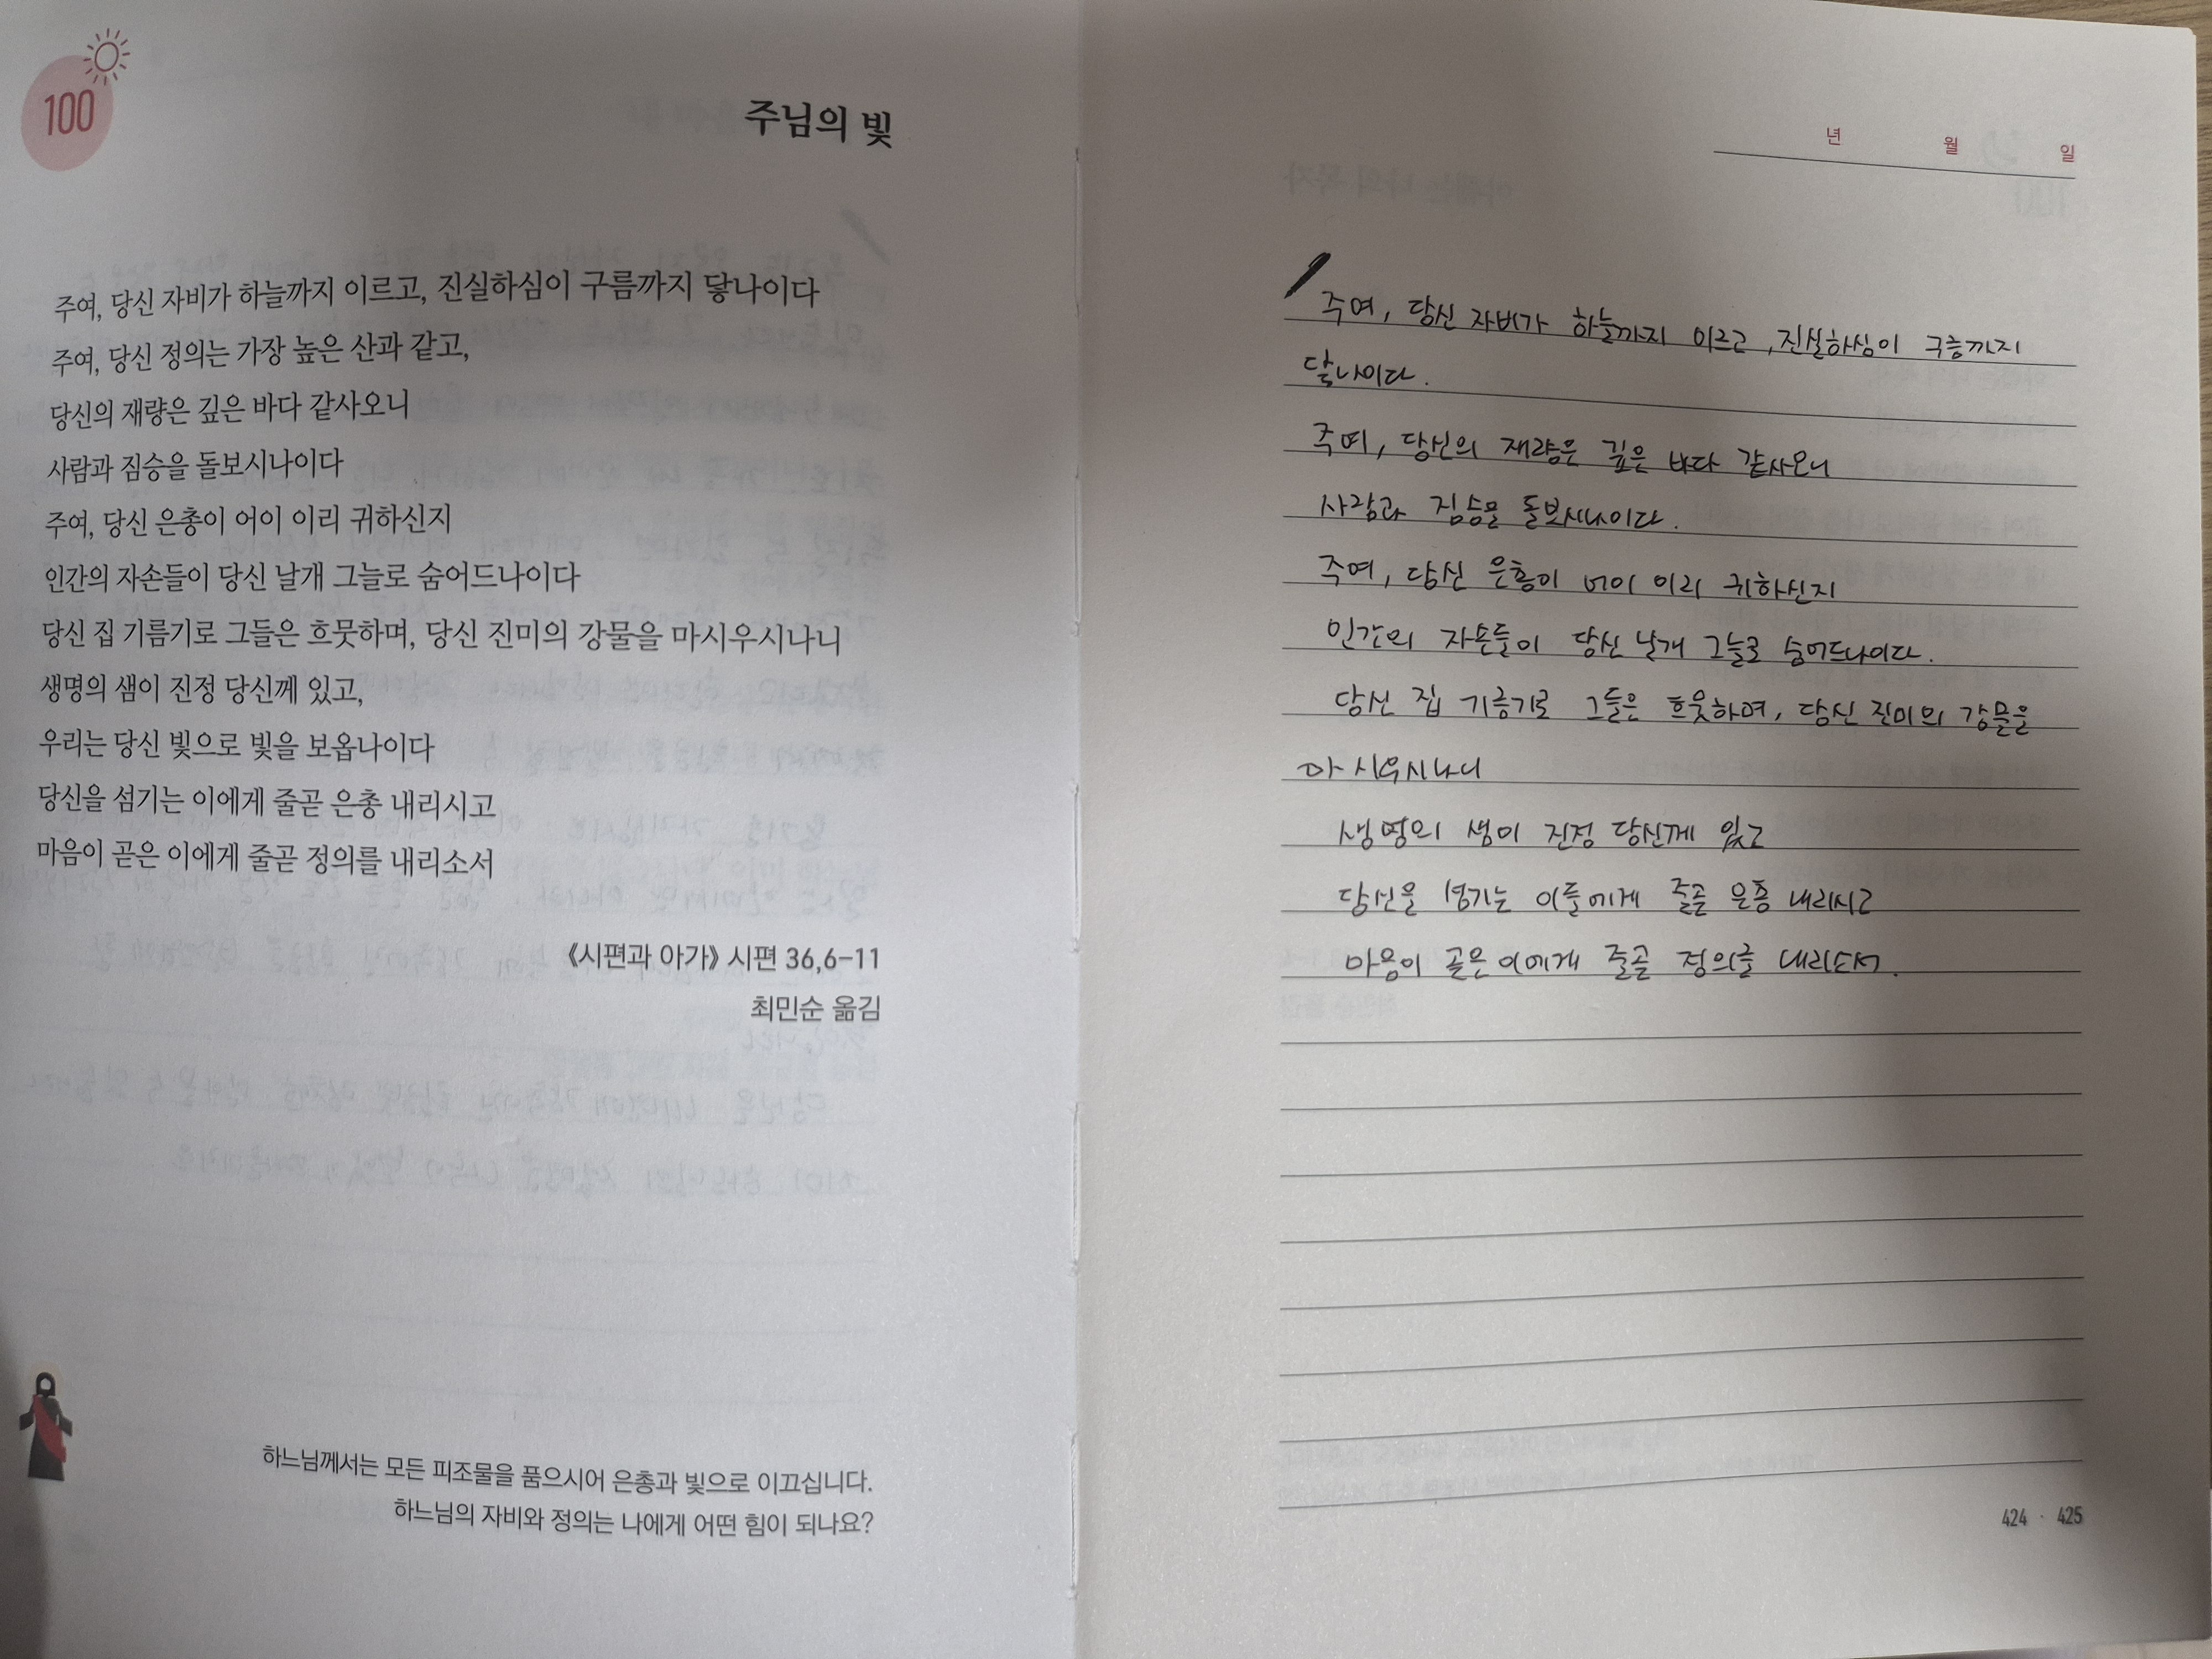 100
주님의 빛
주여, 당신 자비가 하늘까지 이르고, 진실하심이 구름까지 닿나이다
주여, 당신 정의는 가장 높은 산과 같고,
당신의 재량은 깊은 바다 같사오니
사람과 짐승을 돌보시나이다
주여, 당신 은총이 어이 이리 귀하신지
인간의 자손들이 당신 날개 그늘로 숨어드나이다
당신 집 기름기로 그들은 흐뭇하며, 당신 진미의 강물을 마시우시나니
생명의 샘이 진정 당신께 있고,
우리는 당신 빛으로 빛을 보옵나이다
당신을 섬기는 이에게 줄곧 은총 내리시고
마음이 곧은 이에게 줄곧 정의를 내리소서
《시편과 아가》 시편 36,6-11
최민순 옮김
하느님께서는 모든 피조물을 품으시어 은총과 빛으로 이끄십니다.
하느님의 자비와 정의는 나에게 어떤 힘이 되나요?
년 월 일
주여, 당신 자비가 하늘까지 이르고, 진실하심이 구름까지
닿나이다.
주여, 당신의 재량은 깊은 바다 같사오니
사람과 짐승을 돌보시나이다.
주여, 당신 은총이 어이 이리 귀하신지
인간의 자손들이 당신 날개 그늘로 숨어드나이다.
당신 집 기름기로 그들은 흐뭇하며, 당신 진미의 강물을
마시우시나니
생명의 샘이 진정 당신께 있고
당신을 섬기는 이들에게 줄곧 은총 내리시고
마음이 곧은 이에게 줄곧 정의를 내리소서.
424 · 425